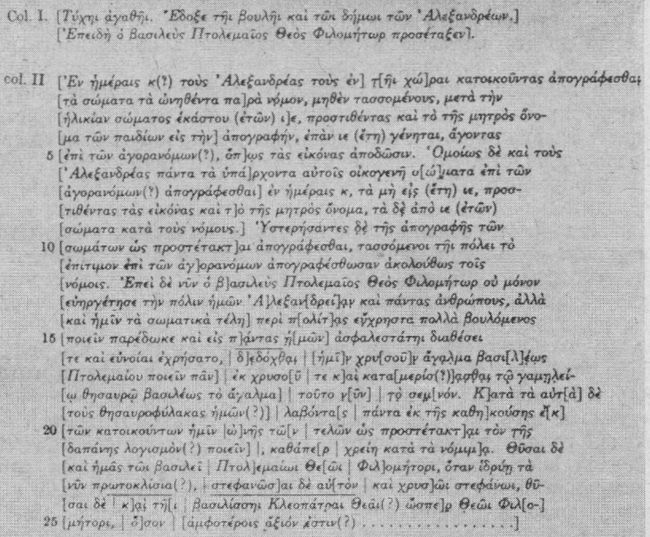 Col. I. [Τύχηι ἀγαθῆι. Ἔδοξε τῆι βουλῆι καὶ τῶι δήμωι τῶν Ἀλεξανδρέων.]
[Ἐπειδὴ ὁ βασιλεὺς Πτολεμαῖος Θεὸς Φιλομήτωρ προσέταξεν].
col. II [Ἐν ἡμέραις κ(?) τοὺς Ἀλεξανδρέας τοὺς ἐν] τ[ῆι χώ]ραι κατοικοῦντας ἀπογράφεσθαι
[τὰ σώματα τὰ ὠνηθέντα πα]ρὰ νόμον, μηθὲν τασσομένους, μετὰ τὴν
[ἡλικίαν σώματος ἑκάστου (ἐτῶν) ι]ε, προστιθέντας καὶ τὸ τῆς μητρὸς ὄνο-
[μα τῶν παιδίων εἰς τὴν] ἀπογραφήν, ἐπὰν ιε (ἔτη) γένηται, ἄγοντας
5 [ἐπὶ τῶν ἀγορανόμων(?), ὅπ]ως τὰς εἰκόνας ἀποδῶσιν. Ὁμοίως δὲ καὶ τοὺς
[Ἀλεξανδρέας πάντα τὰ ὑπά]ρχοντα αὐτοῖς οἰκογενῆ σ[ώ]ματα ἐπὶ τῶν
[ἀγορανόμων(?) ἀπογράφεσθαι] ἐν ἡμέραις κ, τὰ μὴ εἰς (ἔτη) ιε, προσ-
[τιθέντας τὰς εἰκόνας καὶ τ]ὸ τῆς μητρὸς ὄνομα, τὰ δὲ ἀπὸ ιε (ἐτῶν)
[σώματα κατὰ τοὺς νόμους.] Ὑστερήσαντες δὲ τῆς ἀπογραφῆς τῶν
10 [σωμάτων ὡς προστέτακτ]αι ἀπογράφεσθαι, τασσόμενοι τῆι πόλει τὸ
[ἐπίτιμον ἐπὶ τῶν ἀγ]ορανόμων ἀπογραφέσθωσαν ἀκολούθως τοῖς
[νόμοις. Ἐπεὶ δὲ νῦν ὁ β]ασιλεὺς Πτολεμαῖος Θεὸς Φιλομήτωρ οὐ μόνον
[εὐηργέτησε τὴν πόλιν ἡμῶν Ἀ]λεξαν[δρει]αν καὶ πάντας ἀνθρώπους, ἀλλὰ
[καὶ ἡμῖν τὰ σωματικὰ τέλη] περὶ π[ολίτ]ας εὔχρηστα πολλὰ βουλόμενος
15 [ποιεῖν παρέδωκε καὶ εἰς π]άντας ἡ[μῶν] ἀσφαλεστάτηι διαθέσει
[τε καὶ εὐνοίαι ἐχρήσατο, | δ]εδόχθαι | [ἡμῖ]ν χρυ[σοῦ]ν ἄγαλμα βασι[λ]έως
[Πτολεμαίου ποιεῖν πᾶν] | ἐκ χρυσο[ῦ | τε κ]αὶ κατα[μερίσ(?)]ασθαι τῷ γαμηλεί-
[ῳ θησαυρῷ βασιλέως τὸ ἄγαλμα] | τοῦτο ν[ῦν] | τὸ σεμ[νόν. Κ]ατὰ τὰ αὐτ[ὰ] δὲ
[τοὺς θησαυροφύλακας ἡμῶν(?)] | λαβόντα[ς | πάντα ἐκ τῆς καθη]κούσης ἐ[κ]
20 [τῶν κατοικούντων ἡμῖν | ὠ]νῆς τῶ[ν | τελῶν ὡς προστέτακτ]αι τὸν τῆς
[δαπάνης λογισμὸν(?) ποιεῖν] |, καθάπε[ρ | χρείη κατὰ τὰ νόμιμ]α. Θῦσαι δὲ
[καὶ ἡμᾶς τῶι βασιλεῖ | Πτολ]εμαίωι Θε[ῶι | Φιλ]ομήτορι, ὅταν ἱδρύῃ τὰ
[νῦν πρωτοκλίσια(?), | στεφανῶσ]αι δὲ αὐ[τὸν | καὶ χρυσ]ῶι στεφάνωι, θῦ-
[σαι δὲ | κ]αὶ τῆ[ι | βασιλίσσηι Κλεοπάτραι Θεᾶι(?) ὥσπε]ρ Θεῶι Φιλ[ο-]
25 [μήτορι, | ὅ]σον | [ἀμφοτέροις ἄξιόν ἐστιν(?) . . . . . . . . . . . . . . . . .]